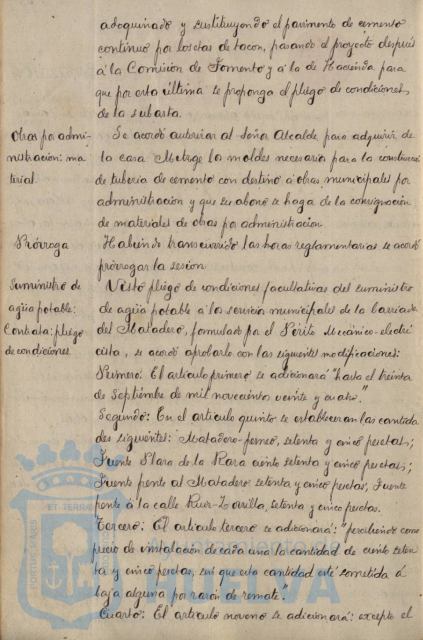 adoquinado y sustituyendo el pavimento de cemento
continuo por losetas de tacon, pasando el proyecto después
á la Comision de Fomento y á la de Hacienda para
que por esta última se proponga el pliego de condiciones
de la subasta.
Obras por admi-
nistracion: ma
terial.
Se acordó autorizar al Señor Alcalde para adquirir de
la casa Metzge los moldes necesarios para la construcció
de tuberia de cemento con destino á obras municipales por
administracion y que su abono se haga de la consignacion
de materiales de obras por administracion.
Prórroga
Habiendo transcurrido las horas reglamentarias se acordó
prorrogar la sesion.
Suministro de
agua potable:
Contrata: pliego
de condiciones
Visto pliego de condiciones facultativas del suministro
de agua potable á los servicios municipales de la barriada
del Matadero, formulado por el Périto Mecánico-electri
cista, se acordó aprobarlo con las siguientes modificaciones:
Primero: El articulo primero se adicionará "hasta el treinta
de Septiembre de mil novecientos veinte y cuatro."
Segundo: En el articulo quinto se estableceran las cantida
des siguientes: Matadero, setenta y cinco pesetas;
Fuente Plaza de la ciento setenta y cinco pesetas;
Fuente frente al Matadero setenta y cinco pesetas; Fuente
frente á la calle Ruiz-Zorrilla, setenta y cinco pesetas.
Tercero: El articulo tercero se adicionará: "percibiendo como
precio de instalacion de cada una la cantidad de ciento seten
ta y cinco pesetas, sin que esta cantidad esté sometida á
baja alguna por razón de remate."
Cuarto: El articulo noveno se adicionará: excepto el
ET TERRAE
PORTUS MARIS
Ayuntamiento de
HUELVA